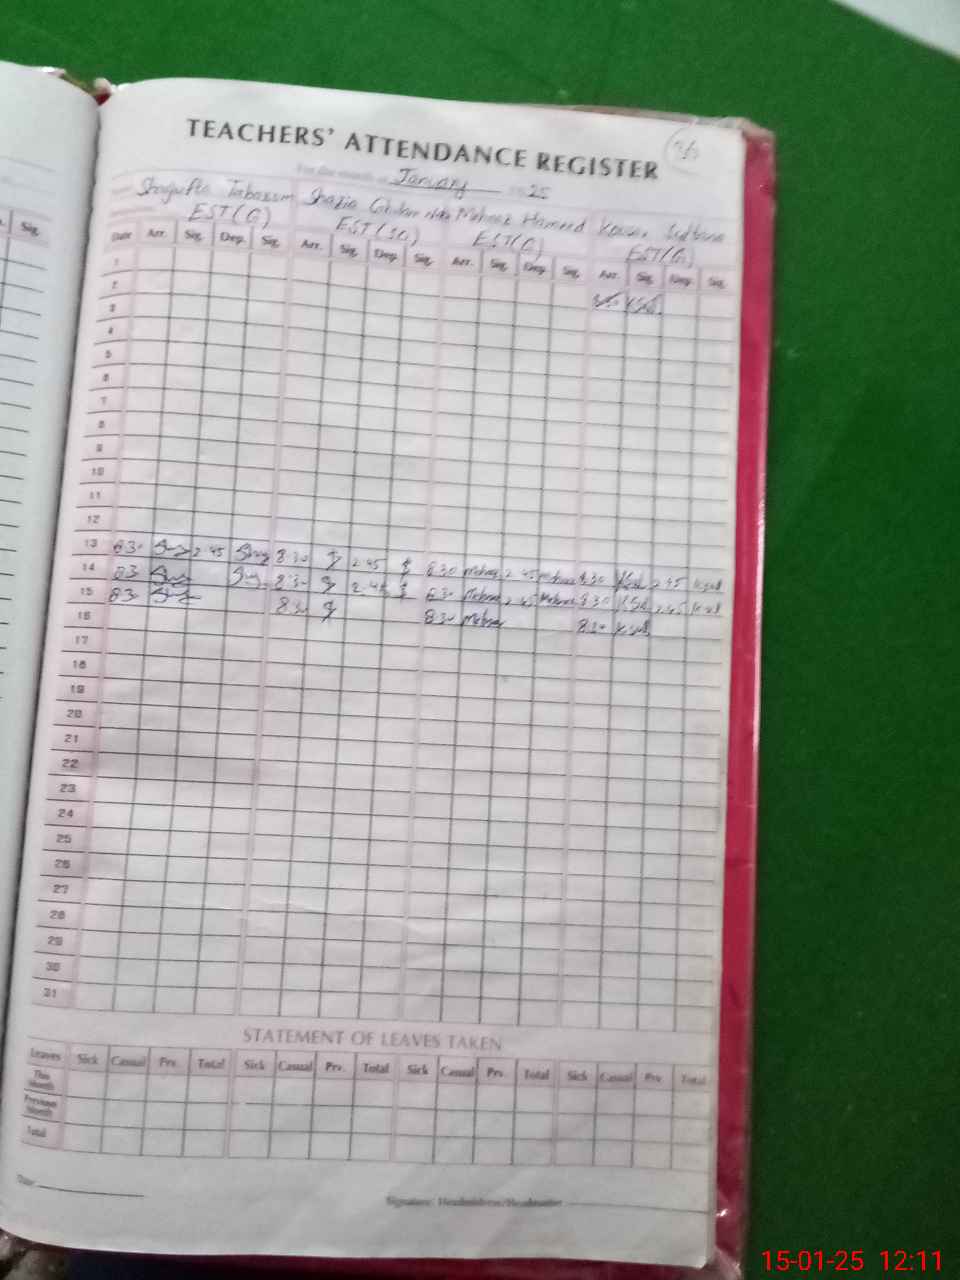 Sig.
TEACHERS' ATTENDANCE REGISTER
For the month of January 25
Shagufta Tabassum Shazia Mehnaz Hameed Kousar Sultana
EST(G) EST(SG) EST(G) EST(G)
Date Arr. Sig. Dep. Sig. Arr. Sig. Dep. Sig. Arr. Sig. Dep. Sig. Arr. Sig. Dep. Sig.
1
2
3
4
5
6
7
8
9
10
11
12
13 8.30 2.45 8.30 2.45 8.30 Mehnaz 2.45 Mehnaz 8.30 KSul 2.45 KSul
14 8.3 8.30 2.45 8.30 Mehnaz 2.45 Mehnaz 8.30 KSul 2.45 KSul
15 8.3 8.30 8.30 Mehnaz 8.30 KSul
16
17
18
19
20
21
22
23
24
25
26
27
28
29
30
31
STATEMENT OF LEAVES TAKEN
Leaves Sick Casual Prv. Total Sick Casual Prv. Total Sick Casual Prv. Total Sick Casual Prv. Total
This Month
Previous Month
Total
Date Signature: Headmistress/Headmaster
15-01-25 12:11